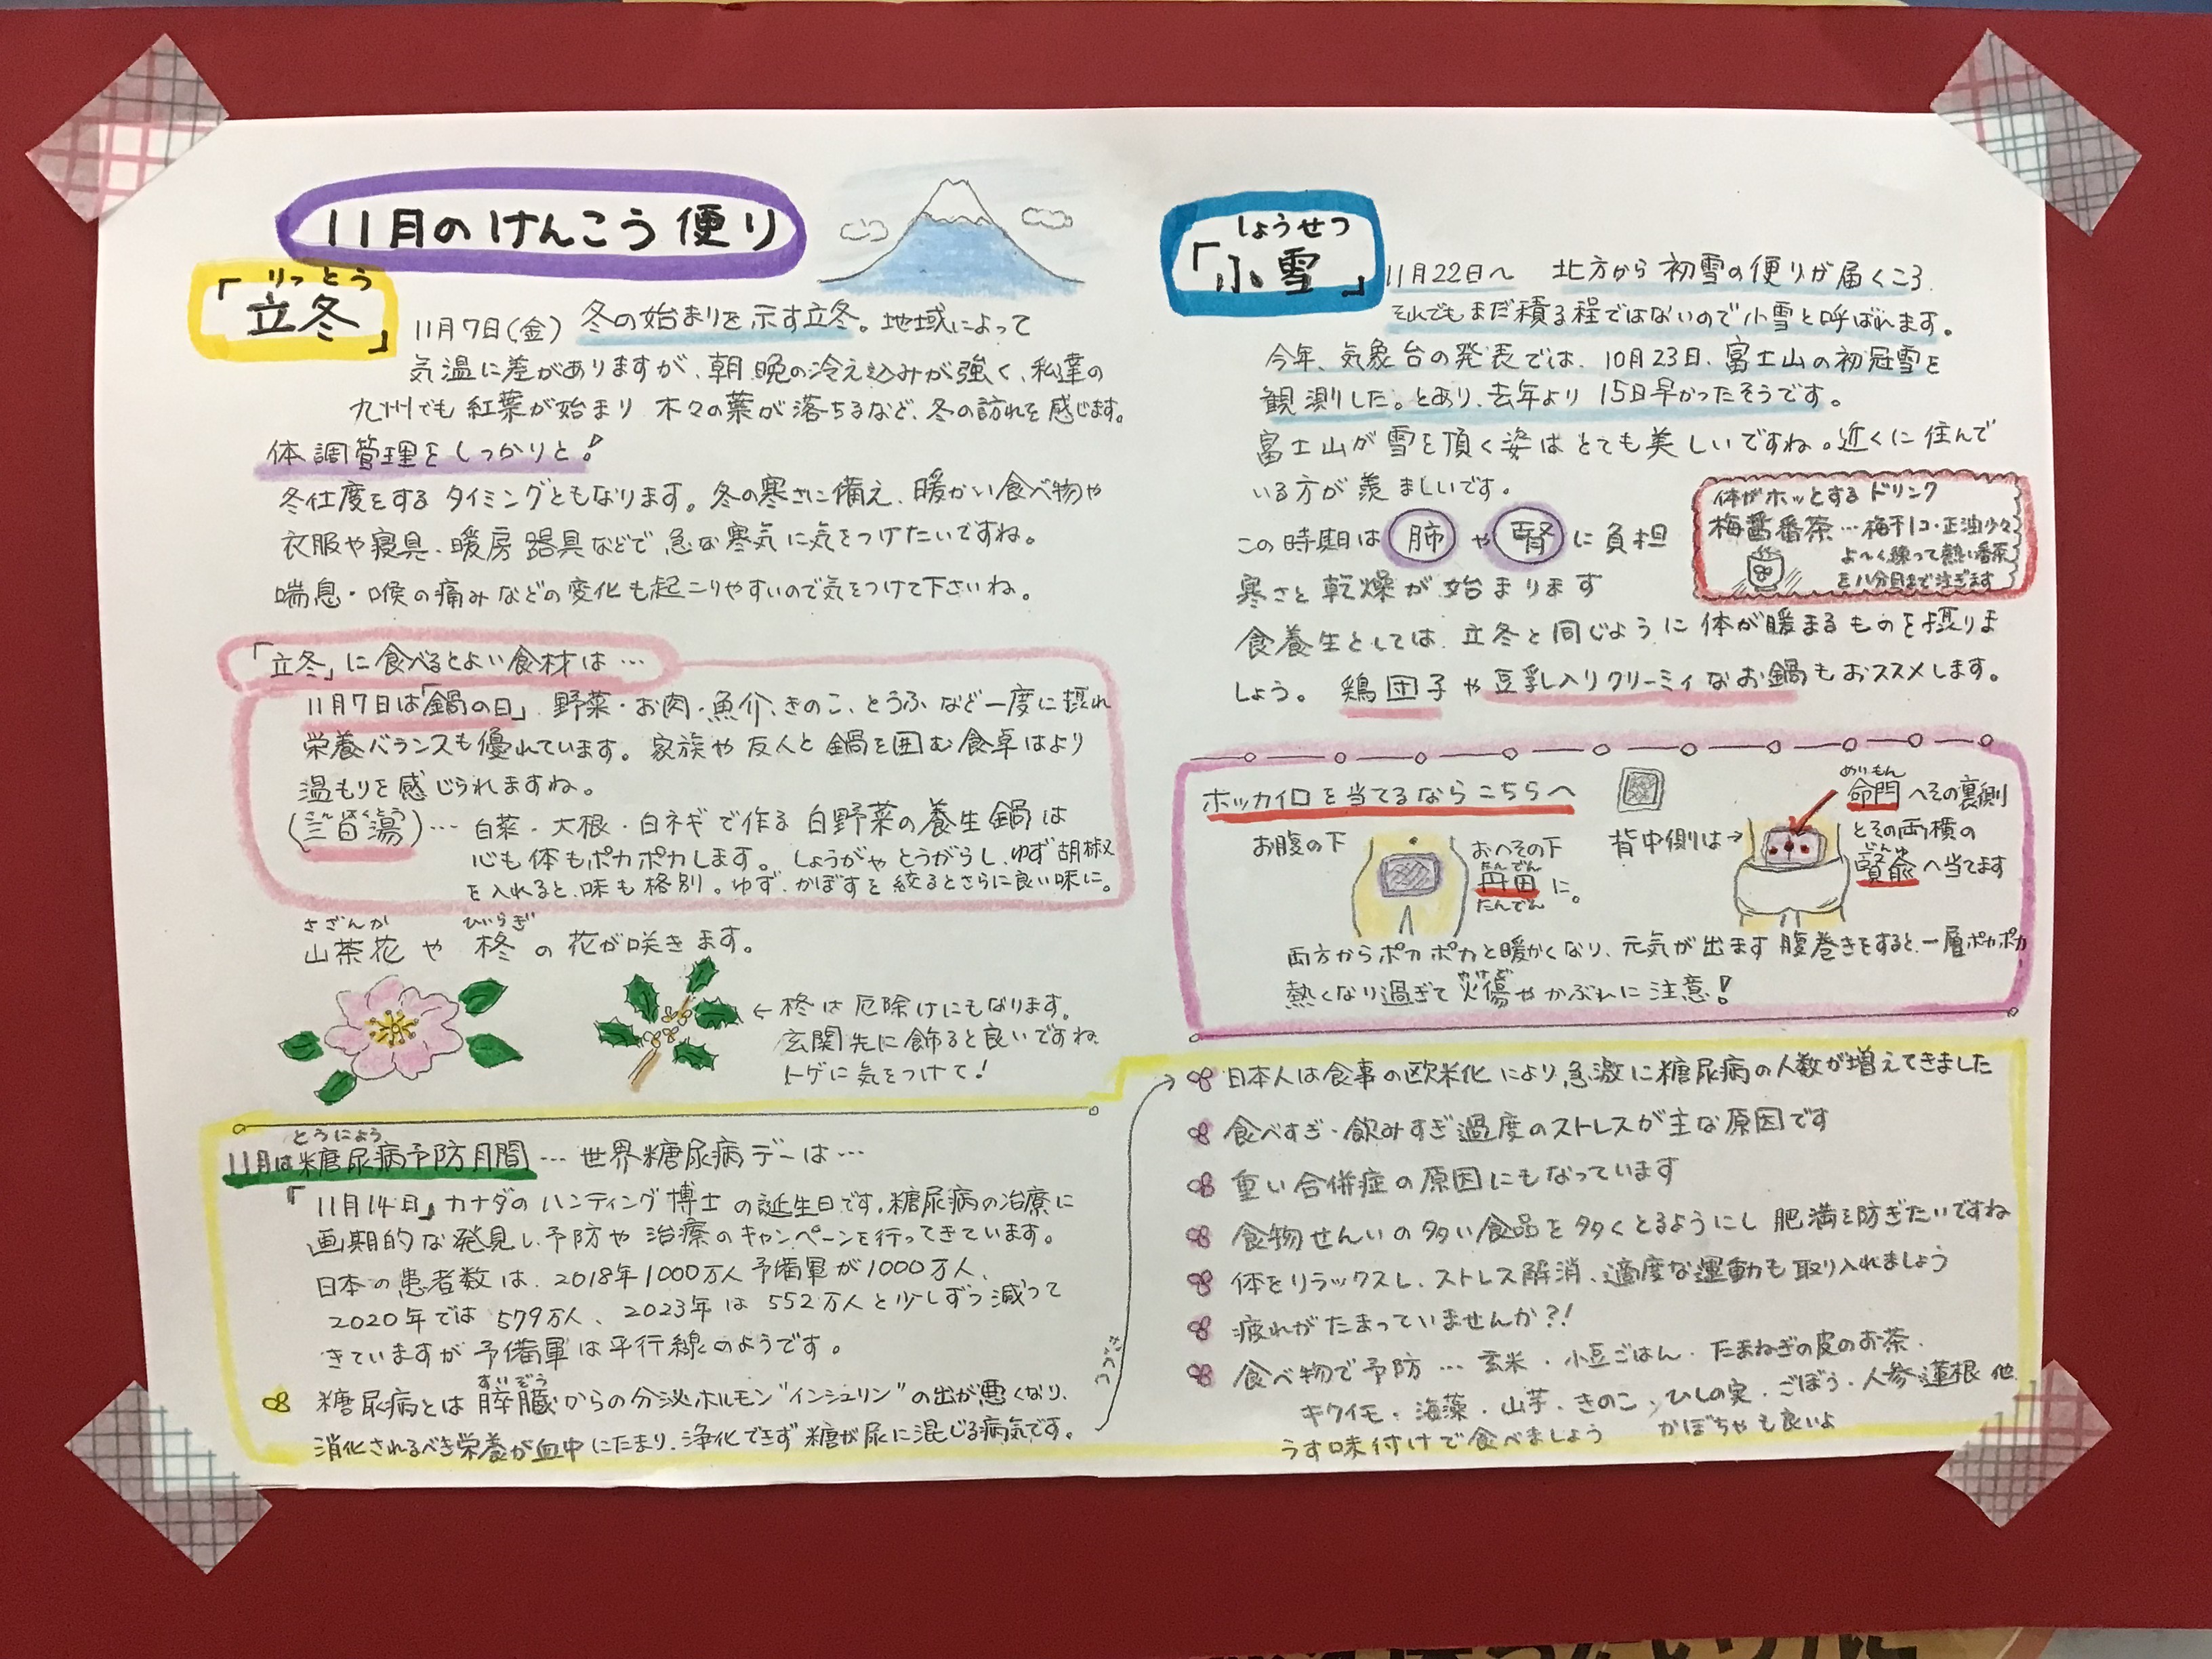 11月のけんこう便り
りっとう
「立冬」
11月7日(金) 冬の始まりを示す立冬。地域によって
気温に差がありますが、朝晩の冷え込みが強く、私達の
九州でも紅葉が始まり 木々の葉が落ちるなど、冬の訪れを感じます。
体調管理をしっかりと!
冬仕度をするタイミングともなります。冬の寒さに備え、暖かい食べ物や
衣服や寝具、暖房器具などで急な寒気に気をつけたいですね。
喘息・喉の痛みなどの変化も起こりやすいので気をつけて下さいね。
「立冬」に食べるとよい食材は…
11月7日は「鍋の日」、野菜・お肉・魚介、きのこ、とうふなど一度に摂れ
栄養バランスも優れています。家族や友人と鍋を囲む食卓はより
温もりを感じられますね。
(三白湯)… 白菜・大根・白ネギで作る白野菜の養生鍋は
心も体もポカポカします。しょうがやとうがらし、ゆず胡椒
を入れると、味も格別。ゆず、かぼすを絞るとさらに良い味に。
さざんか ひいらぎ
山茶花 や 柊 の花が咲きます。
←柊は厄除けにもなります。
玄関先に飾ると良いですね
トゲに気をつけて!
とうにょう
11月は糖尿病予防月間 … 世界糖尿病デーは…
「11月14日」カナダのハンティング博士の誕生日です。糖尿病の治療に
画期的な発見し、予防や治療のキャンペーンを行ってきています。
日本の患者数は、2018年1000万人予備軍が1000万人、
2020年では579万人、2023年は552万人と少しずつ減って
きていますが予備軍は平行線のようです。
すいぞう
糖尿病とは膵臓からの分泌ホルモン"インシュリン"の出が悪くなり、
消化されるべき栄養が血中にたまり、浄化できず糖が尿に混じる病気です。
つづく
しょうせつ
「小雪」
11月22日〜 北方から初雪の便りが届くころ
それでもまだ積る程ではないので小雪と呼ばれます。
今年、気象台の発表では、10月23日、富士山の初冠雪を
観測した。とあり、去年より15日早かったそうです。
富士山が雪を頂く姿はとても美しいですね。近くに住んで
いる方が羨ましいです。
この時期は肺や腎に負担
寒さと乾燥が始まります
体がホッとするドリンク
梅醤番茶…梅干1コ・正油少々
よ〜く練って熱い番茶
を八分目まで注ぎます
食養生としては、立冬と同じように体が暖まるものを摂りま
しょう。鶏団子や豆乳入りクリーミィなお鍋もおススメします。
ホッカイロを当てるならこちらへ
お腹の下
おへその下
たんでん
丹田に。
たんでん
背中側は→
めいもん
命門へその裏側
とその両横の
じんゆ
腎兪へ当てます
両方からポカポカと暖かくなり、元気が出ます 腹巻きをすると一層ポカポカ
やけど
熱くなり過ぎて火傷やかぶれに注意!
日本人は食事の欧米化により、急激に糖尿病の人数が増えてきました
食べすぎ・飲みすぎ過度のストレスが主な原因です
重い合併症の原因にもなっています
食物せんいの多い食品を多くとるようにし肥満を防ぎたいですね
体をリラックスし、ストレス解消、適度な運動も取り入れましょう
疲れがたまっていませんか?!
食べ物で予防 … 玄米・小豆ごはん・たまねぎの皮のお茶・
キクイモ・海藻・山芋・きのこ・ひしの実・ごぼう・人参蓮根 他
かぼちゃも良いよ
うす味付けで食べましょう